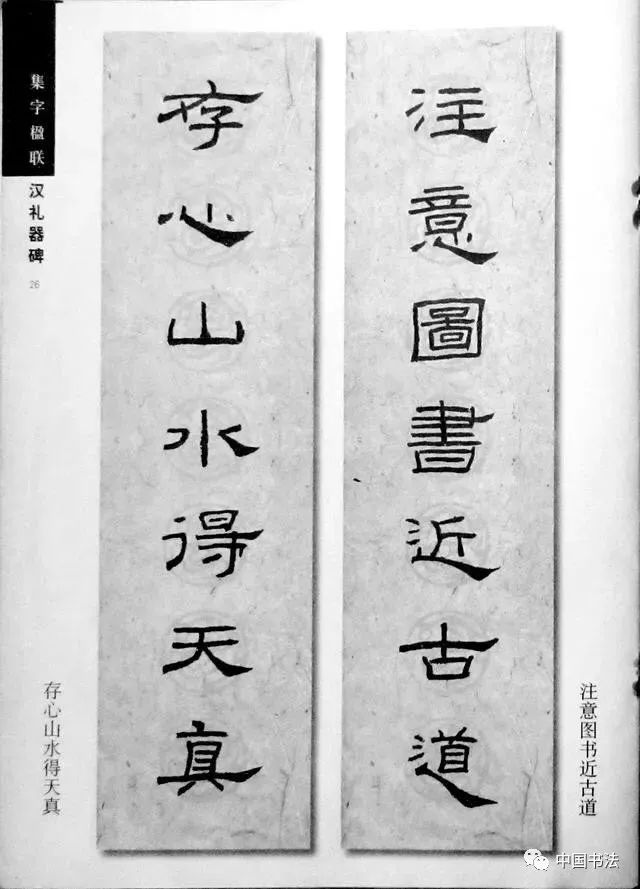 注意圖書近古道
存心山水得天真
注意图书近古道
存心山水得天真
集字楹联
汉礼器碑
26
中国书法